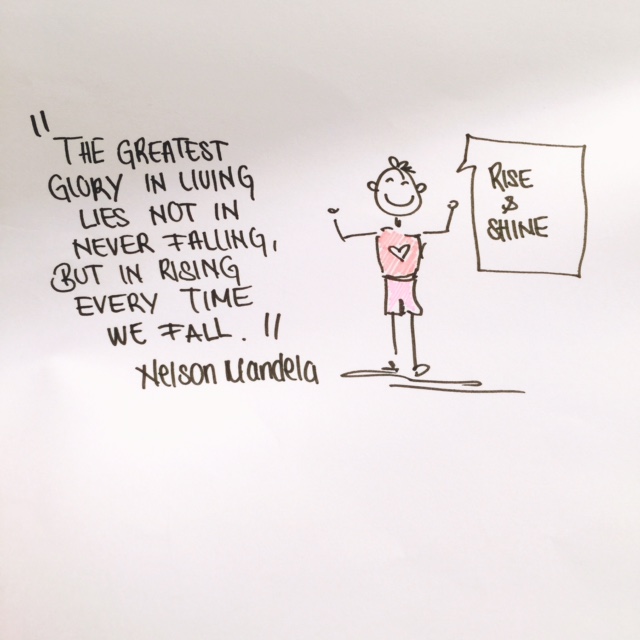 "THE GREATEST
GLORY IN LIVING
LIES NOT IN
NEVER FALLING,
BUT IN RISING
EVERY TIME
WE FALL."
Nelson Mandela
RISE
&
SHINE